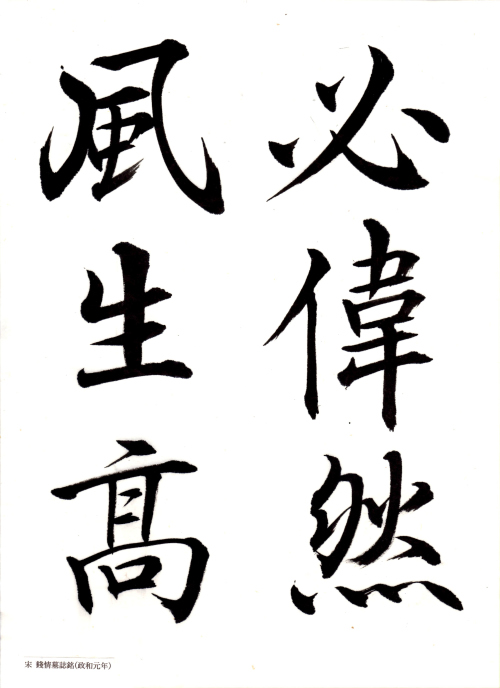 必偉然
風生髙
宋 錢惰墓誌銘(政和元年)